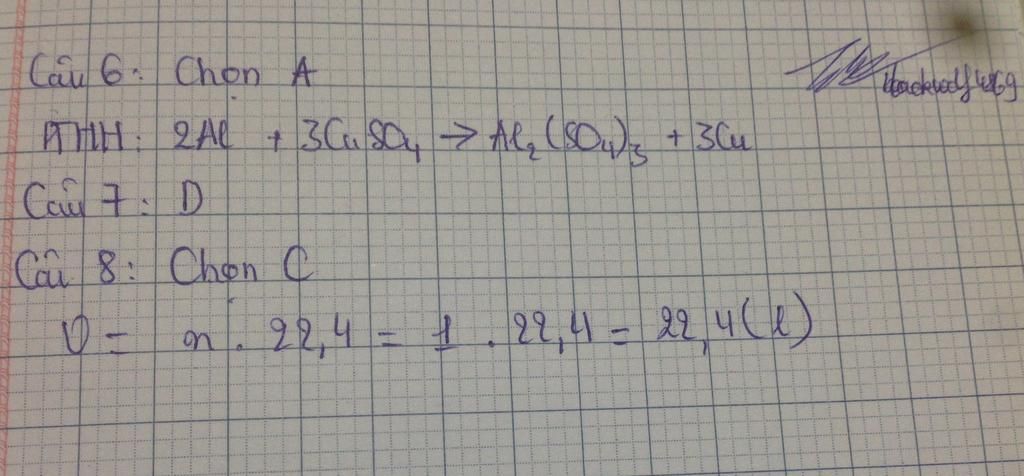 Câu 6: Chọn A
PTHH: 2Al + 3CuSO₄ → Al₂(SO₄)₃ + 3Cu
Câu 7: D
Câu 8: Chọn C
V = n . 22,4 = 1 . 22,4 = 22,4(l)